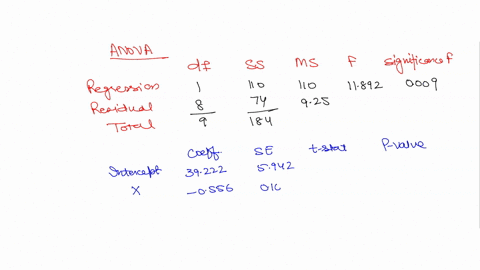 ANOVA
df SS MS F Significance F
Regression 1 110 110 11.892 0.009
Residual 8 74 9.25
Total 9 184
Coeff SE t-stat P-value
Intercept 39.222 5.942
X -0.556